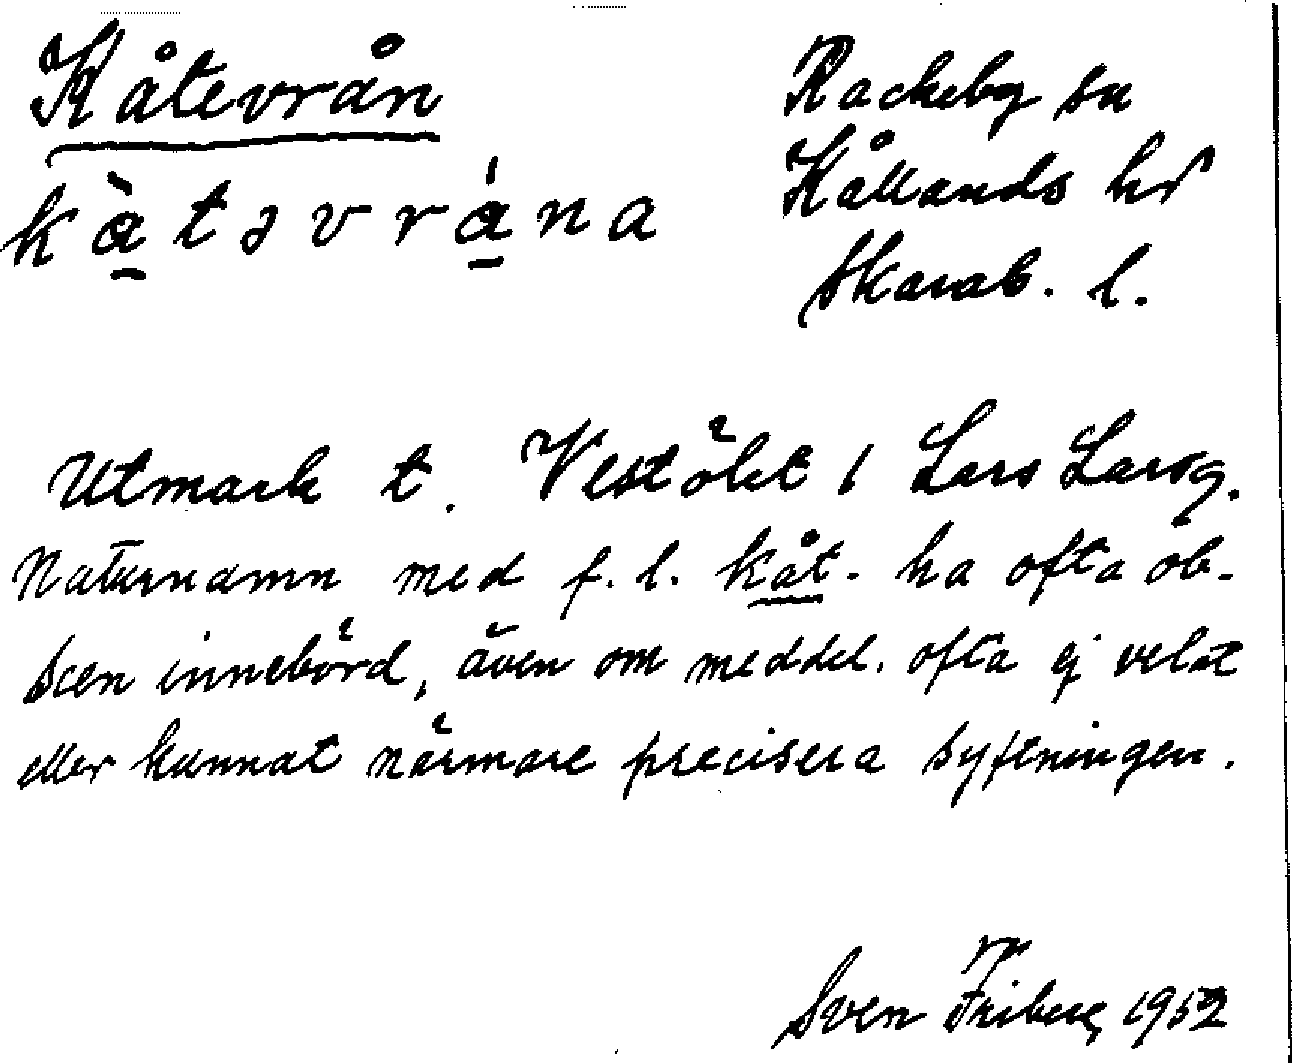 Kåtevrån
Rackeby sn
kàtəvrána
Kållands hd
Skarab. l.
Utmark t. Vestölet 1 Lars Larsg.
Naturnamn med f. l. kåt- ha ofta ob-
scen innebörd, även om meddel. ofta ej velat
eller kunnat närmare precisera syftningen.
Sven Friberg 1952